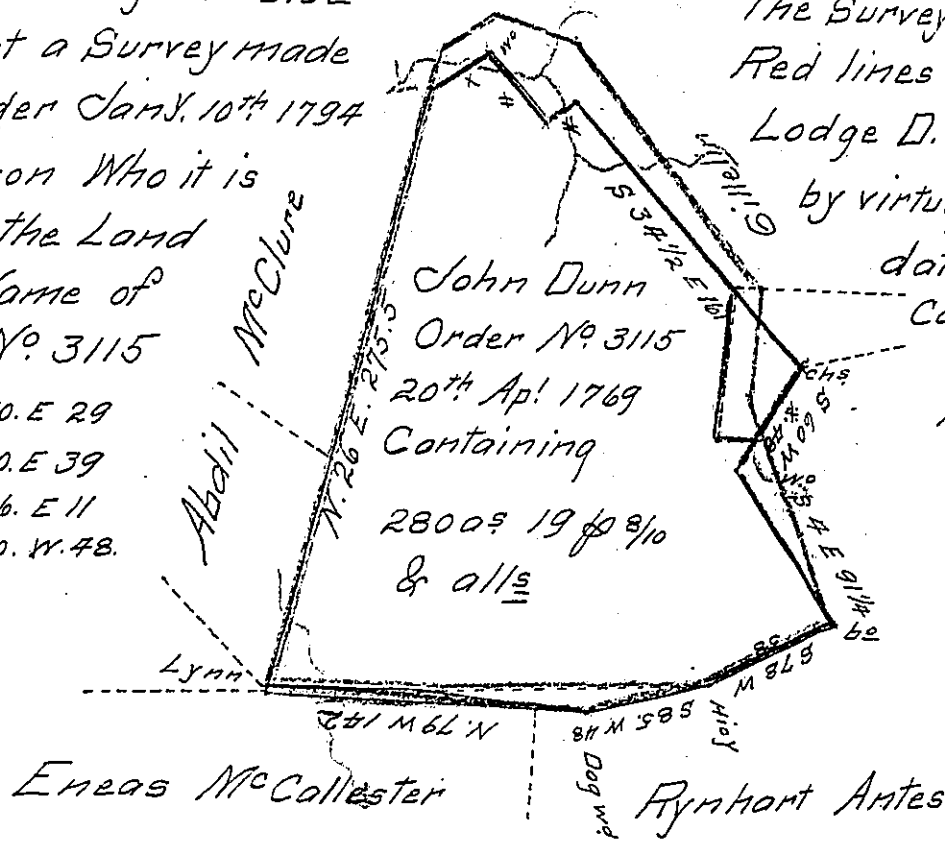 t a Survey made
der Jany. 10th 1794
on Who it is
the Land
ame of
No. 3115
0. E 29
0. E 39
6. E 11
0. W. 48.
The Survey
Red lines
Lodge D.
by virtu
dat
Co
Abdil McClure
Gillelin
N. 26 E. 275.5
S 34 1/2 E 161
John Dunn
Order No. 3115
20th Apl 1769
Containing
280 as 19 p 8/10
& alls
wo
chs
S 60 W
48
wo
S 4 E 91 1/4
bo
S 78 W
38
Hicy
S 85. W 48
Dog wd
N. 79 W 142
Lynn
Eneas McCallester
Rynhart Antes